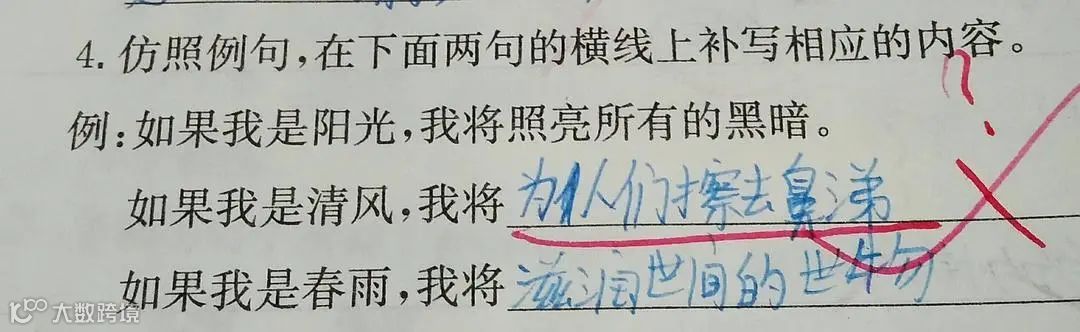 4. 仿照例句,在下面两句的横线上补写相应的内容。
?
例:如果我是阳光,我将照亮所有的黑暗。
如果我是清风,我将为人们擦去鼻涕
如果我是春雨,我将滋润世间的
大数跨境